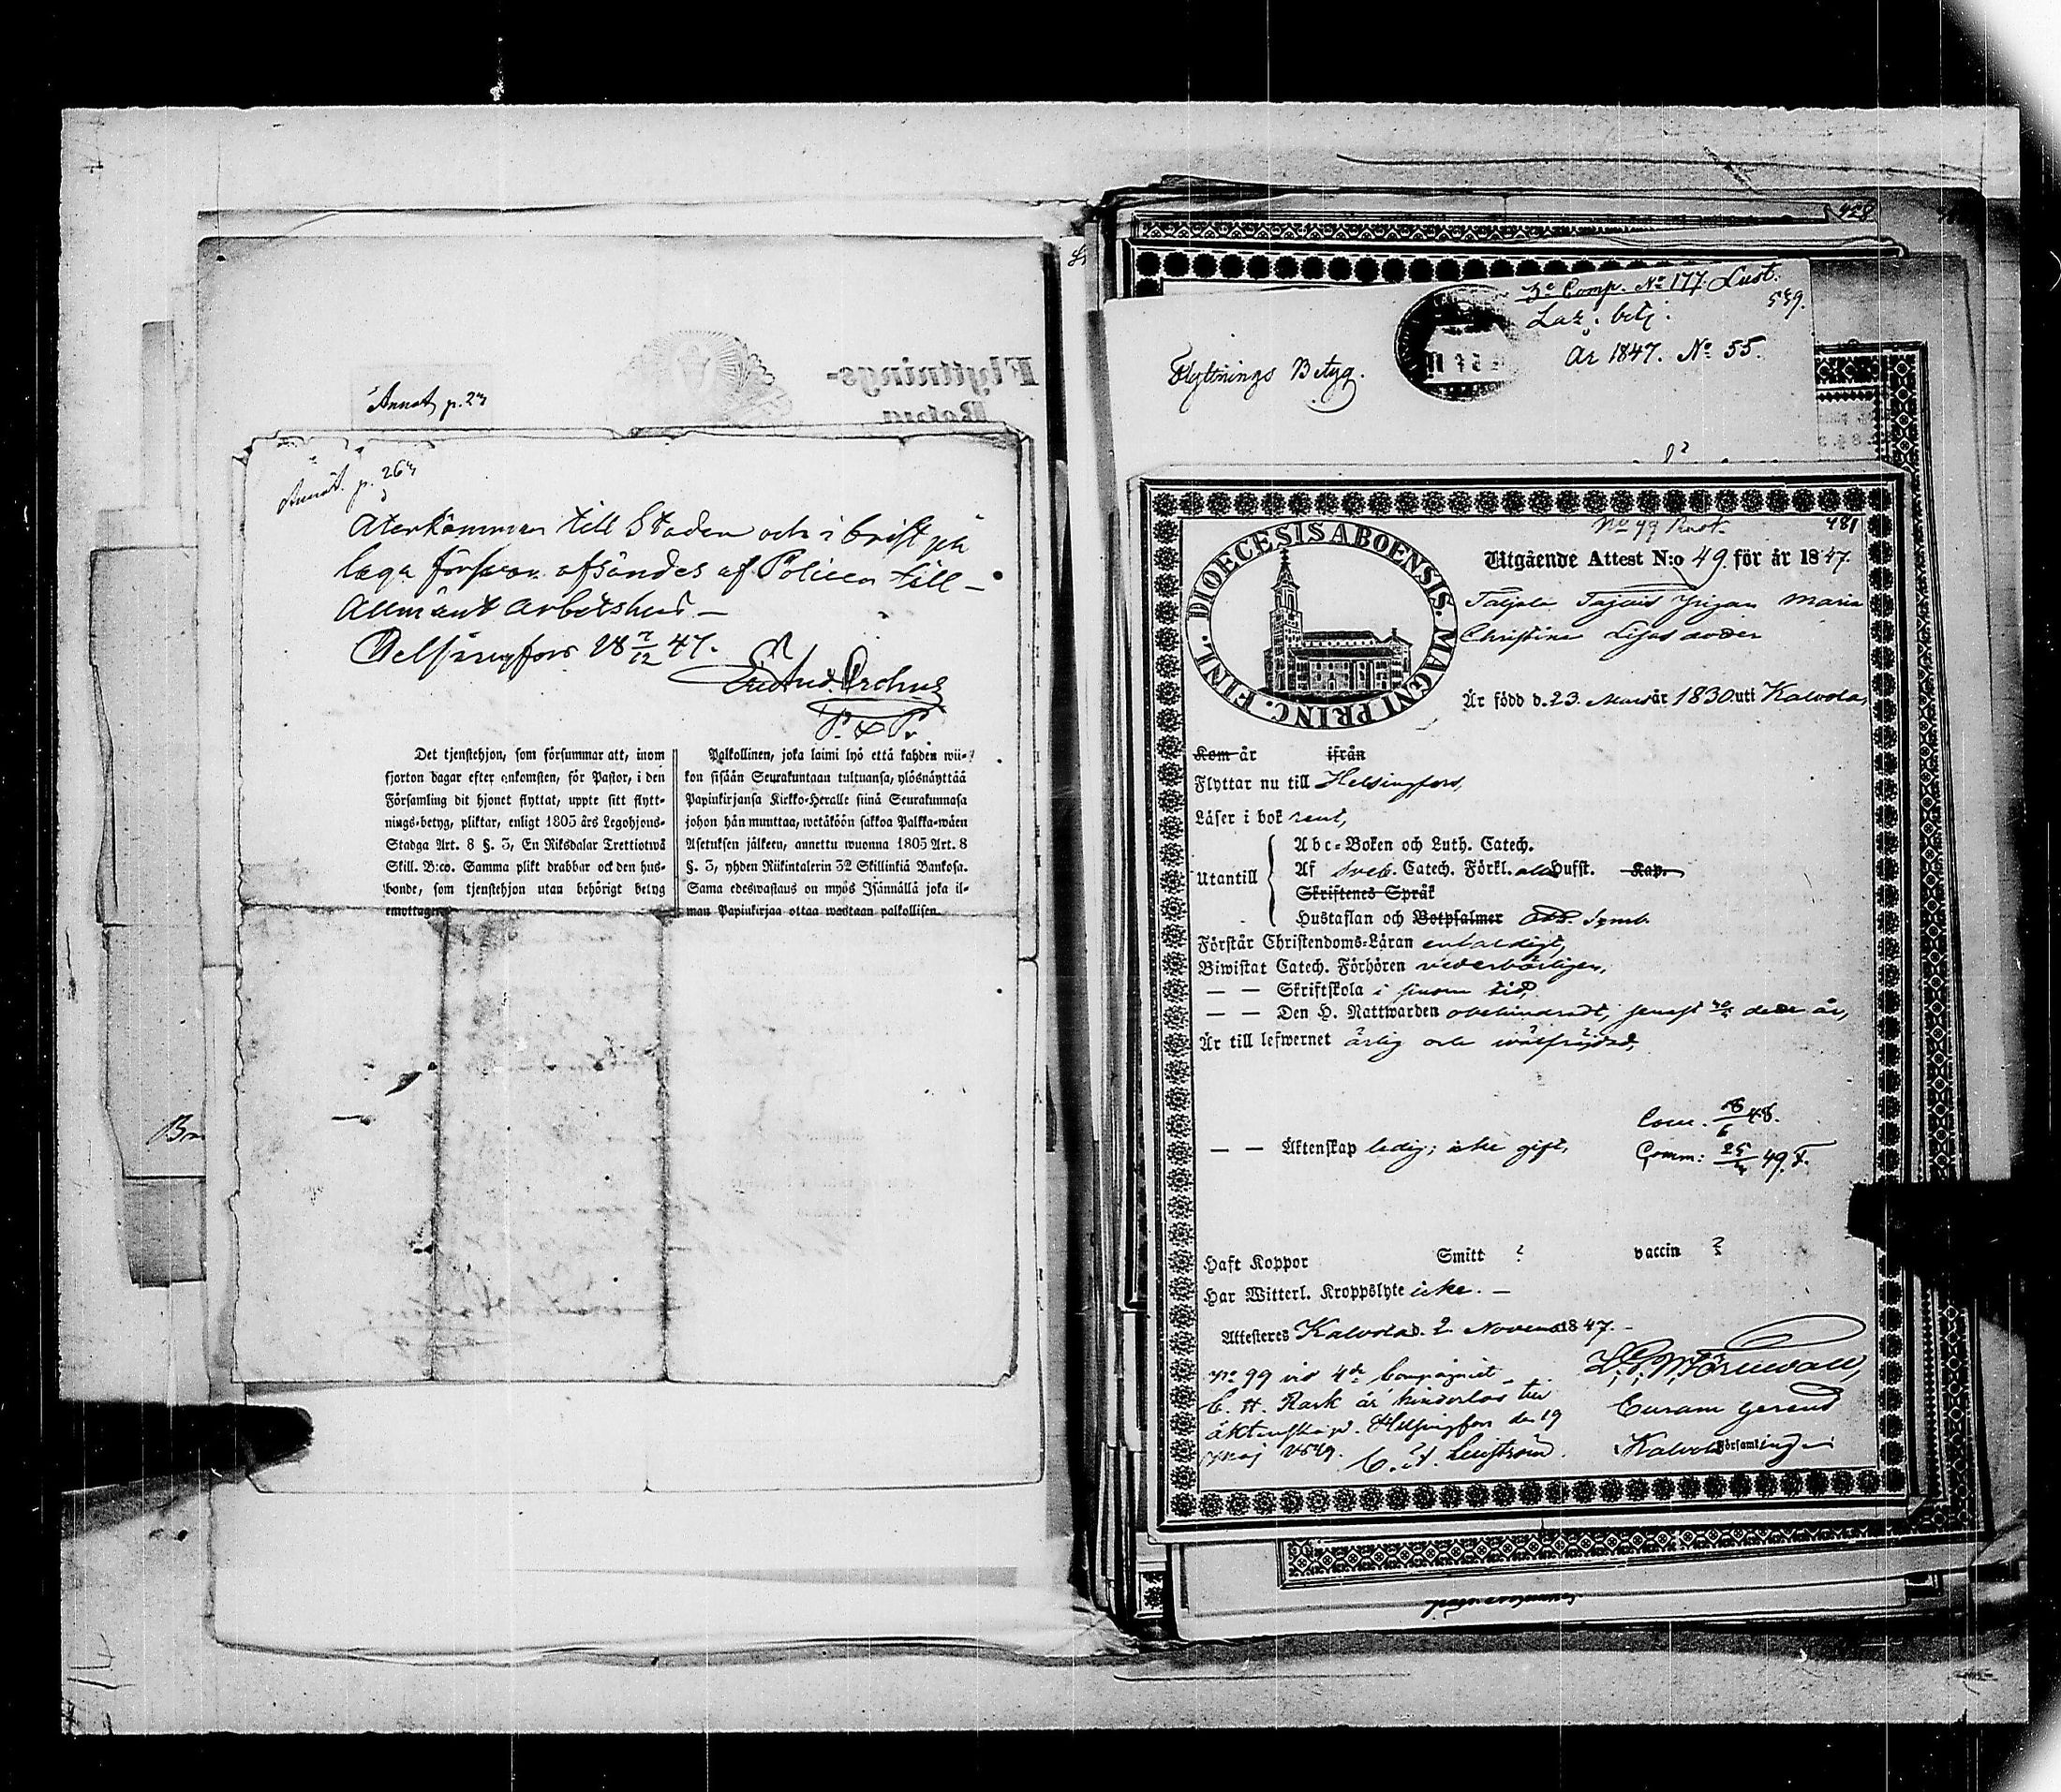 Annot p. 23
Annot. p. 263
Återkommen till Staden och i brist på
laga försvar afsändes af Policen till
Allmänt arbetshus –
Helsingfors 28 7/12 47.
P. & P.
Det tjenstehjon, som försummar att, inom
fjorton dagar efter ankomsten, för Pastor, i den
Församling dit hjonet flyttat, uppte sitt flytt-
nings-betyg, pliktar, enligt 1805 års Legohjons-
Stadga Art. 8 §. 3, En Riksdalar Trettiotwå
Skill. B:co. Samma plikt drabbar ock den hus-
bonde, som tjenstehjon utan behörigt betyg
emottager.
Palkollinen, joka laimi lyö että kahden wii-
kon sisään Seurakuntaan tultuansa, ylösnäyttää
Papinkirjansa Kirkko-Heralle siinä Seurakunnasa
johon hän muuttaa, wetäköön sakkoa Palkka-wäen
Asetuksen jälkeen, annettu wuonna 1805 Art. 8
§. 3, yhden Riikintalerin 32 Skillinkiä Bankosa.
Sama edeswastaus on myös Isännällä joka il-
man Papinkirjaa ottaa wastaan palkollisen.
Flyttnings-
Betyg
3e Comp. No 177. Lust.
539.
Laz. betj.
År 1847. No 55.
Flyttnings Betyg.
No 99 Rust.
481
DIOECESIS ABOENSIS. MAGNI PRINC. FINL.
Utgående Attest N:o 49 för år 1847.
Maria
Christina
Är född d. 23. Mars år 1830. uti Kalvola,
Kom år ifrån
Flyttar nu till Helsingfors,
Läser i bok rent,
Utantill
Abc-Boken och Luth. Catech.
Af Sveb. Catech. Förkl. alla Hufst. Kap.
Skriftenes Språk
Hustaflan och Botpsalmer Ath. Symb.
Förstår Christendoms-Läran enfaldigt,
Biwistat Catech. Förhören vederbörligen,
— — Skriftskola i sinom tid,
— — Den H. Nattwarden obehindradt, senast detta år,
Är till lefwernet ärlig och wälfrejdad,
Com. 18/6 48.
— — Äktenskap ledig; icke gift,
Comm: 49.
Haft Koppor Smitt ? vaccin ?
Har Witterl. Kroppslyte icke. —
Attesteres Kalvola d. 2 Novem 1847.
No 99 vid 4de Compagniet
C. H. Rask är hinderlös till
äktenskap. Helsingfors den 19
Maj 1849.
Curam gerend
Kalvola Församling